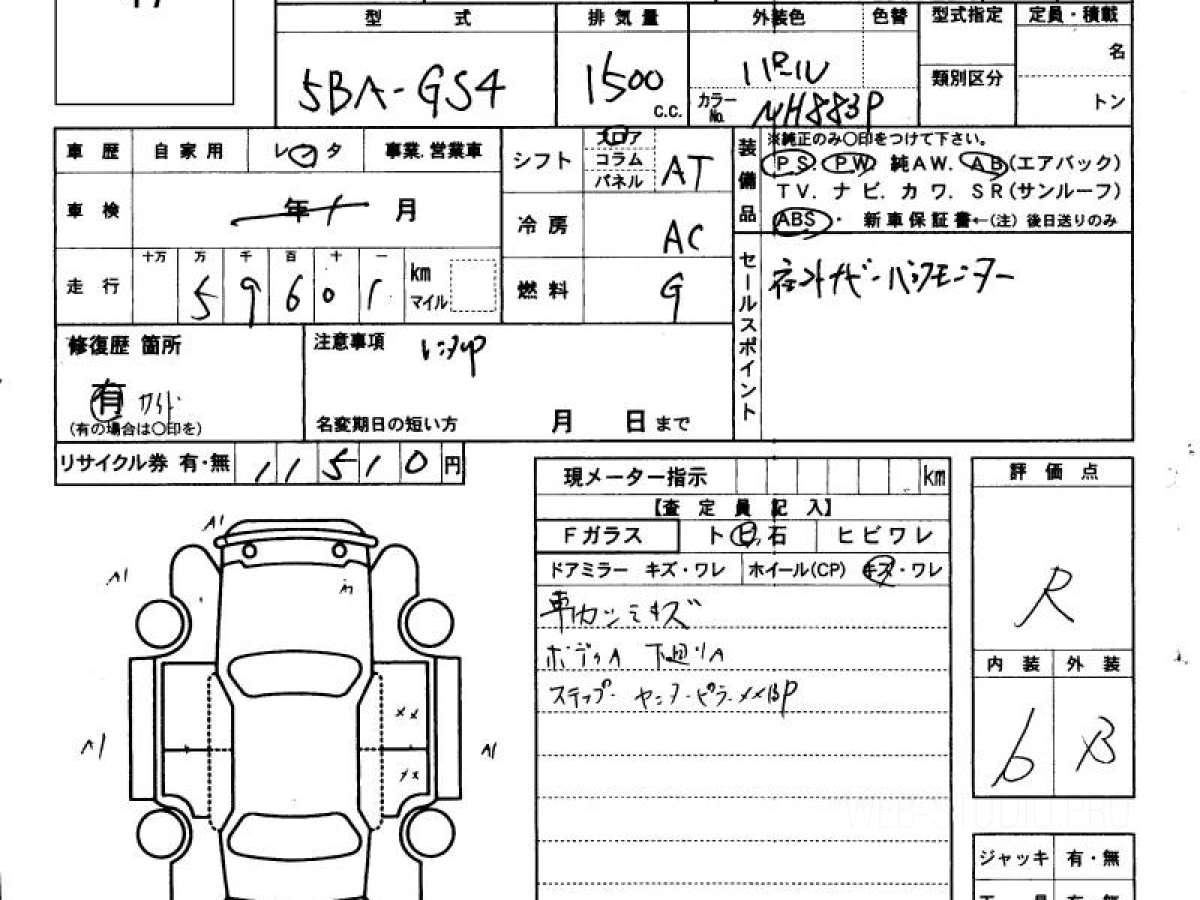 型 式 排気量 外装色 色替 型式指定 定員・積載
5BA-GS4 1500 c.c. パール 名
カラーNo. NH883P 類別区分 トン
車歴 自家用 レンタ 事業.営業車 シフト フロア コラム パネル AT
装備品 ※純正のみ○印をつけて下さい。
PS. PW. 純AW. AB(エアバック)
TV. ナビ. カワ. SR(サンルーフ)
ABS・ 新車保証書←(注) 後日送りのみ
車検 年 月 冷房 AC
走行 十万 万 千 百 十 一
5 9 6 0 1 km マイル 燃料 G
セールスポイント 社外ナビ・バックモニター
修復歴 箇所 注意事項 レンタUP
有 ガイド
(有の場合は○印を) 名変期日の短い方 月 日 まで
リサイクル券 有・無 11510 円
現メーター指示 km 評価点
【査定員記入】
Fガラス トビ石 ヒビワレ
ドアミラー キズ・ワレ ホイール(CP) キズ・ワレ
車カンミキズ
ボディA 下廻りA
ステップ・センターピラーメメBP
R
内装 外装
6 B
A1
A1
A1
A1
xx
xx
WEB-STUDIO.PRO
ジャッキ 有・無